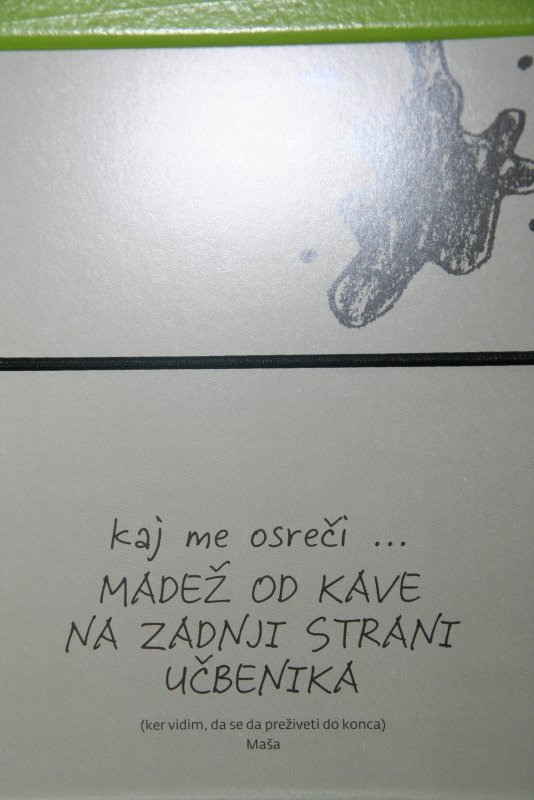 kaj me osreči ...
MADEŽ OD KAVE
NA ZADNJI STRANI
UČBENIKA
(ker vidim, da se da preživeti do konca)
Maša